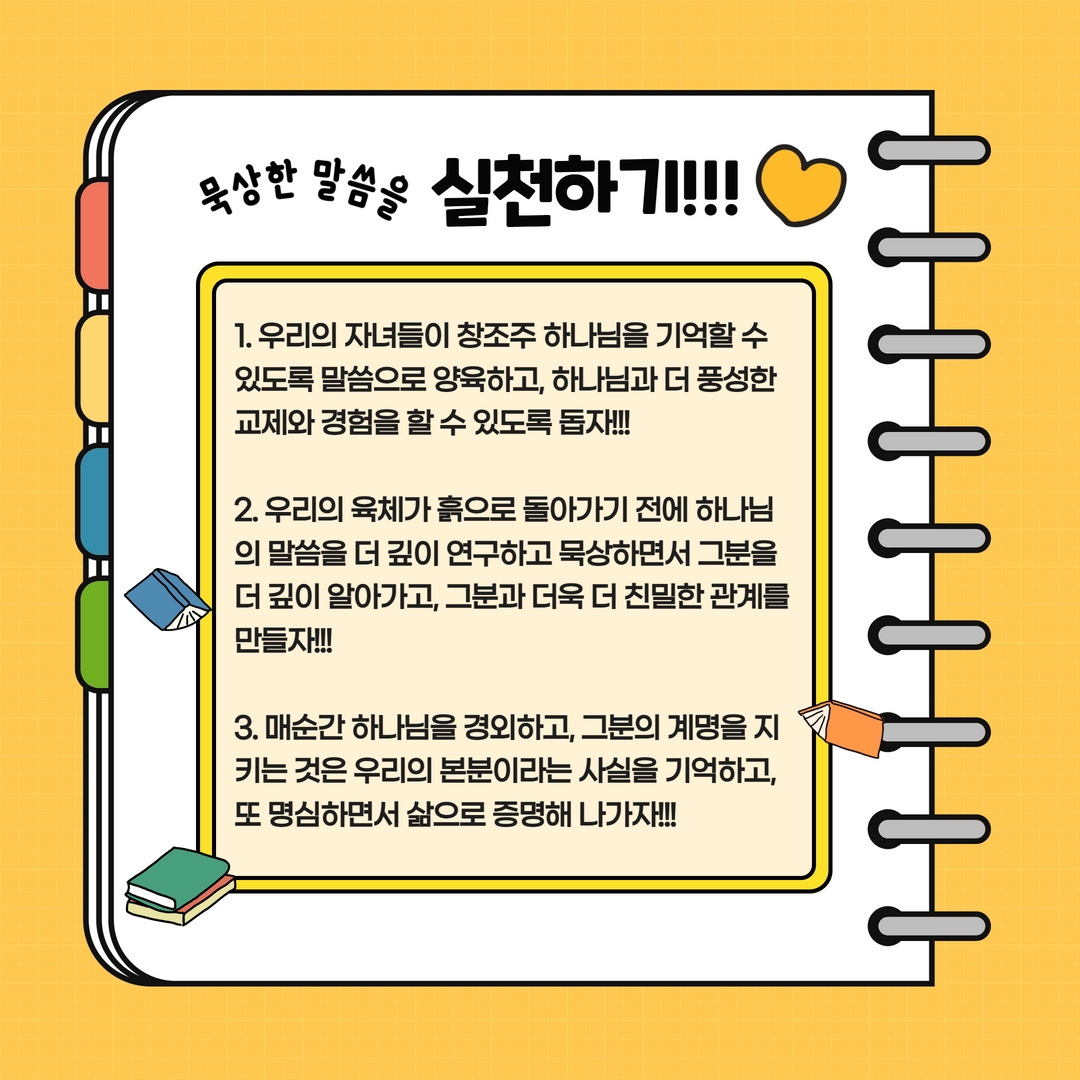 묵상한 말씀을 실천하기!!!
1. 우리의 자녀들이 창조주 하나님을 기억할 수
있도록 말씀으로 양육하고, 하나님과 더 풍성한
교제와 경험을 할 수 있도록 돕자!!!
2. 우리의 육체가 흙으로 돌아가기 전에 하나님
의 말씀을 더 깊이 연구하고 묵상하면서 그분을
더 깊이 알아가고, 그분과 더욱 더 친밀한 관계를
만들자!!!
3. 매순간 하나님을 경외하고, 그분의 계명을 지
키는 것은 우리의 본분이라는 사실을 기억하고,
또 명심하면서 삶으로 증명해 나가자!!!